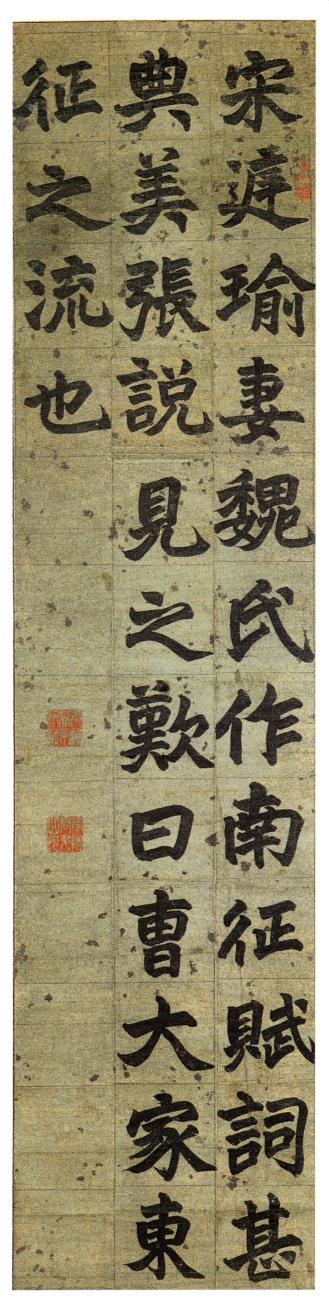 宋庭瑜妻魏氏作南征賦詞甚
典美張說見之歎曰曹大家東
征之流也